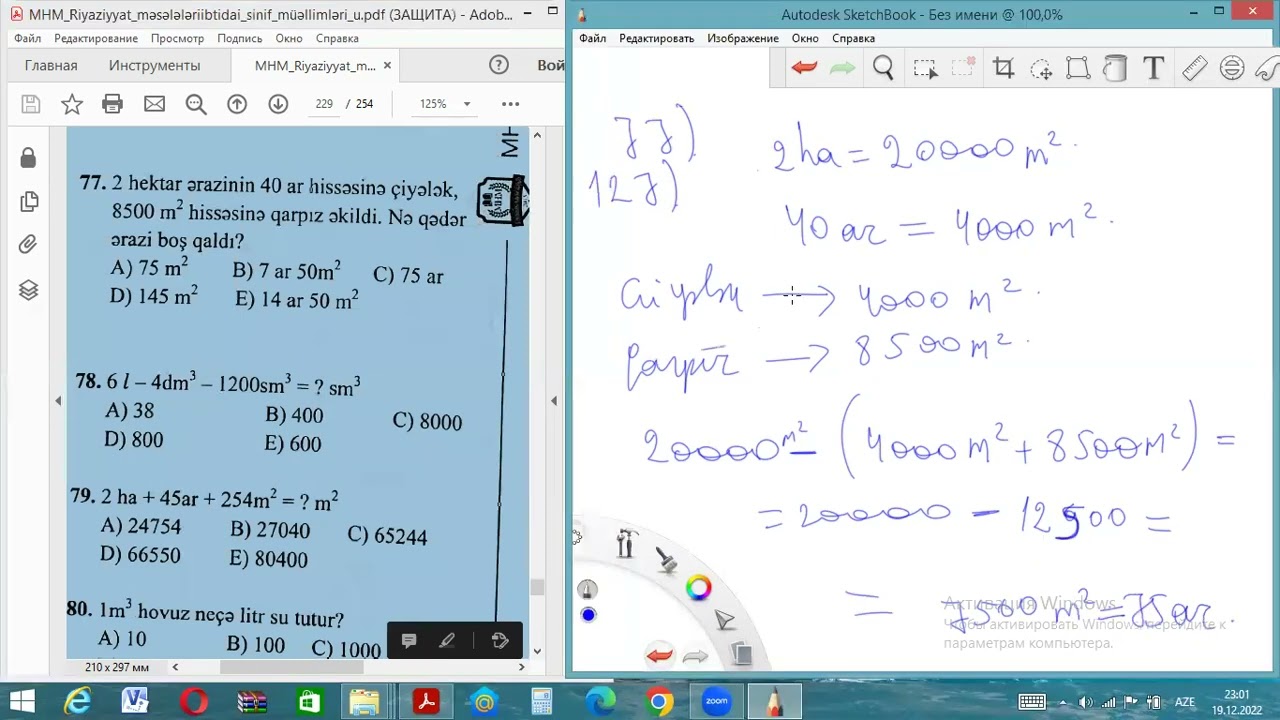 MHM_Riyaziyyat_məsələləriibtidai_sinif_müəllimləri_u.pdf (ЗАЩИТА) - Adob...
Файл Редактирование Просмотр Подпись Окно Справка
Главная Инструменты MHM_Riyaziyyat_m... × Вой
229 / 254 125%
77. 2 hektar ərazinin 40 ar hissəsinə çiyələk,
8500 m² hissəsinə qarpız əkildi. Nə qədər
ərazi boş qaldı?
A) 75 m² B) 7 ar 50m² C) 75 ar
D) 145 m² E) 14 ar 50 m²
78. 6 l – 4dm³ – 1200sm³ = ? sm³
A) 38 B) 400 C) 8000
D) 800 E) 600
79. 2 ha + 45ar + 254m² = ? m²
A) 24754 B) 27040 C) 65244
D) 66550 E) 80400
80. 1m³ hovuz neçə litr su tutur?
A) 10 B) 100 C) 1000
210 x 297 мм
Autodesk SketchBook - Без имени @ 100,0%
Файл Редактировать Изображение Окно Справка
77)
127)
2ha = 20000 m².
40 ar = 4000 m².
→ 4000 m².
→ 8500 m².
20000 m² – (4000 m² + 8500 m²) =
= 20000 – 12500 =
= 7500 m² = 75 ar.
Активация Windows
Чтобы активировать Windows, перейдите к
параметрам компьютера.
zoom
AZE
23:01
19.12.2022